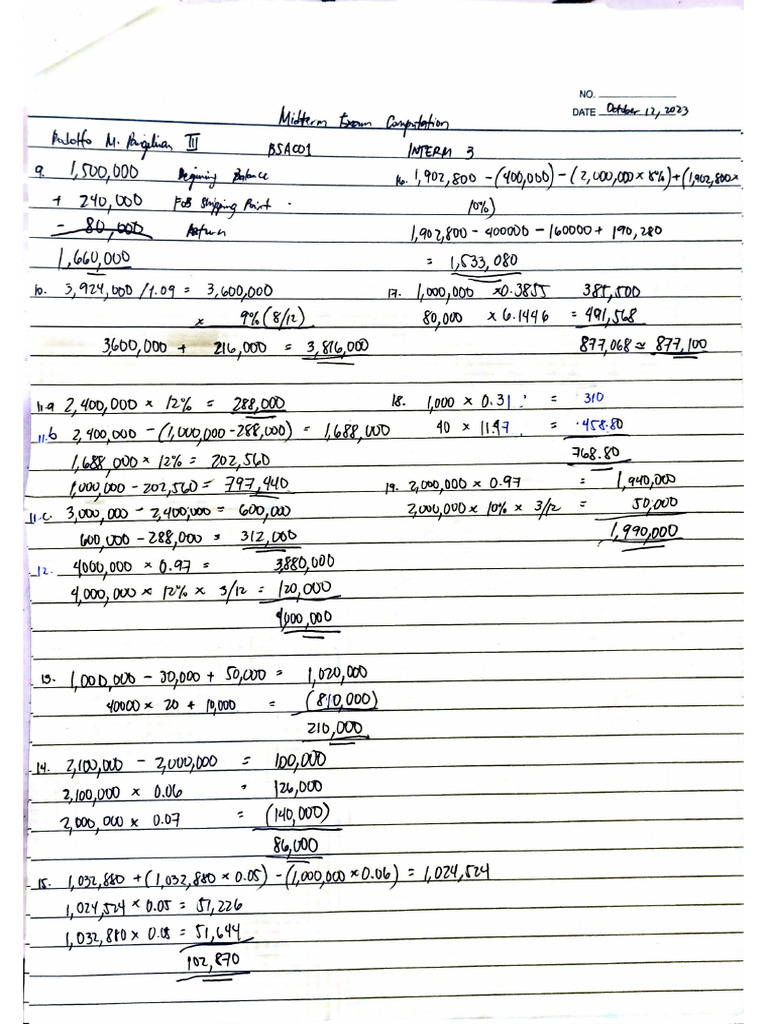 NO.
DATE October 12, 2023
Midterm Exam Computation
Rodolfo M. Pangilinan III BSAC01 INTERM 3
9. 1,500,000 Beginning Balance
+ 240,000 FOB Shipping Point.
- 80,000 Return
1,660,000
10. 3,924,000 / 1.09 = 3,600,000
x 9% (8/12)
3,600,000 + 216,000 = 3,816,000
11.a 2,400,000 x 12% = 288,000
11.b 2,400,000 - (1,000,000 - 288,000) = 1,688,000
1,688,000 x 12% = 202,560
1,000,000 - 202,560 = 797,440
11.c. 3,000,000 - 2,400,000 = 600,000
600,000 - 288,000 = 312,000
12. 4000,000 x 0.97 = 3,880,000
4,000,000 x 12% x 3/12 = 120,000
4000,000
13. 1,000,000 - 30,000 + 50,000 = 1,020,000
40000 x 20 + 10,000 = (810,000)
210,000
14. 2,100,000 - 2,000,000 = 100,000
2,100,000 x 0.06 = 126,000
2,000,000 x 0.07 = (140,000)
86,000
15. 1,032,880 + (1,032,880 x 0.05) - (1,000,000 x 0.06) = 1,024,524
1,024,524 x 0.05 = 51,226
1,032,880 x 0.05 = 51,644
102,870
16. 1,902,800 - (400,000) - (2,000,000 x 8%) + (1,902,800 x
10%)
1,902,800 - 400000 - 160000 + 190,280
= 1,533,080
17. 1,000,000 x 0.3855 385,500
80,000 x 6.1446 = 491,568
877,068 ≃ 877,100
18. 1,000 x 0.31 = 310
40 x 11.47 = 458.80
768.80
19. 2,000,000 x 0.97 = 1,940,000
2,000,000 x 10% x 3/12 = 50,000
1,990,000